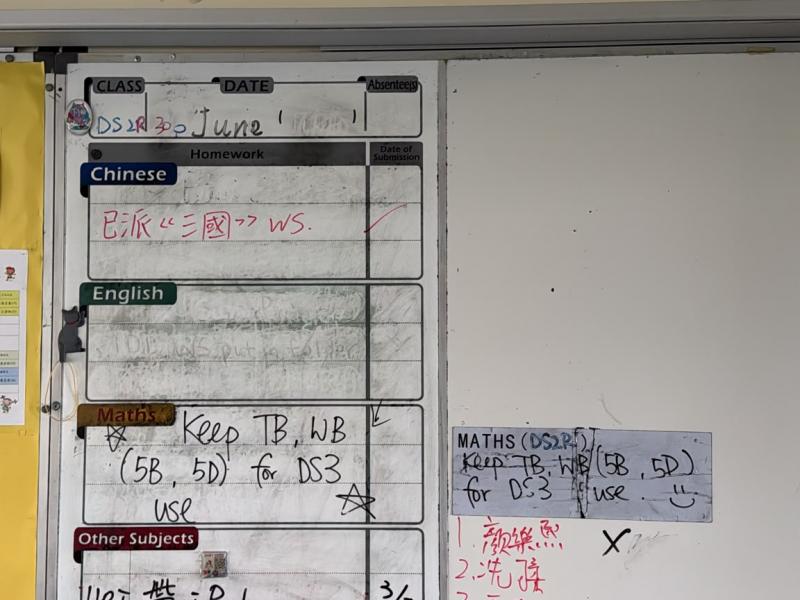 CLASS DATE Absentee(s)
DS2R 30 June ( )
Homework Date of Submission
Chinese
已派《三國》WS. ✓
English
Maths
☆ Keep TB, WB
(5B, 5D) for DS3
use ☆
Other Subjects
3/
MATHS (DS2R)
Keep TB, WB (5B, 5D)
for DS3 use.
1. 顏樂熙 X
2. 冼